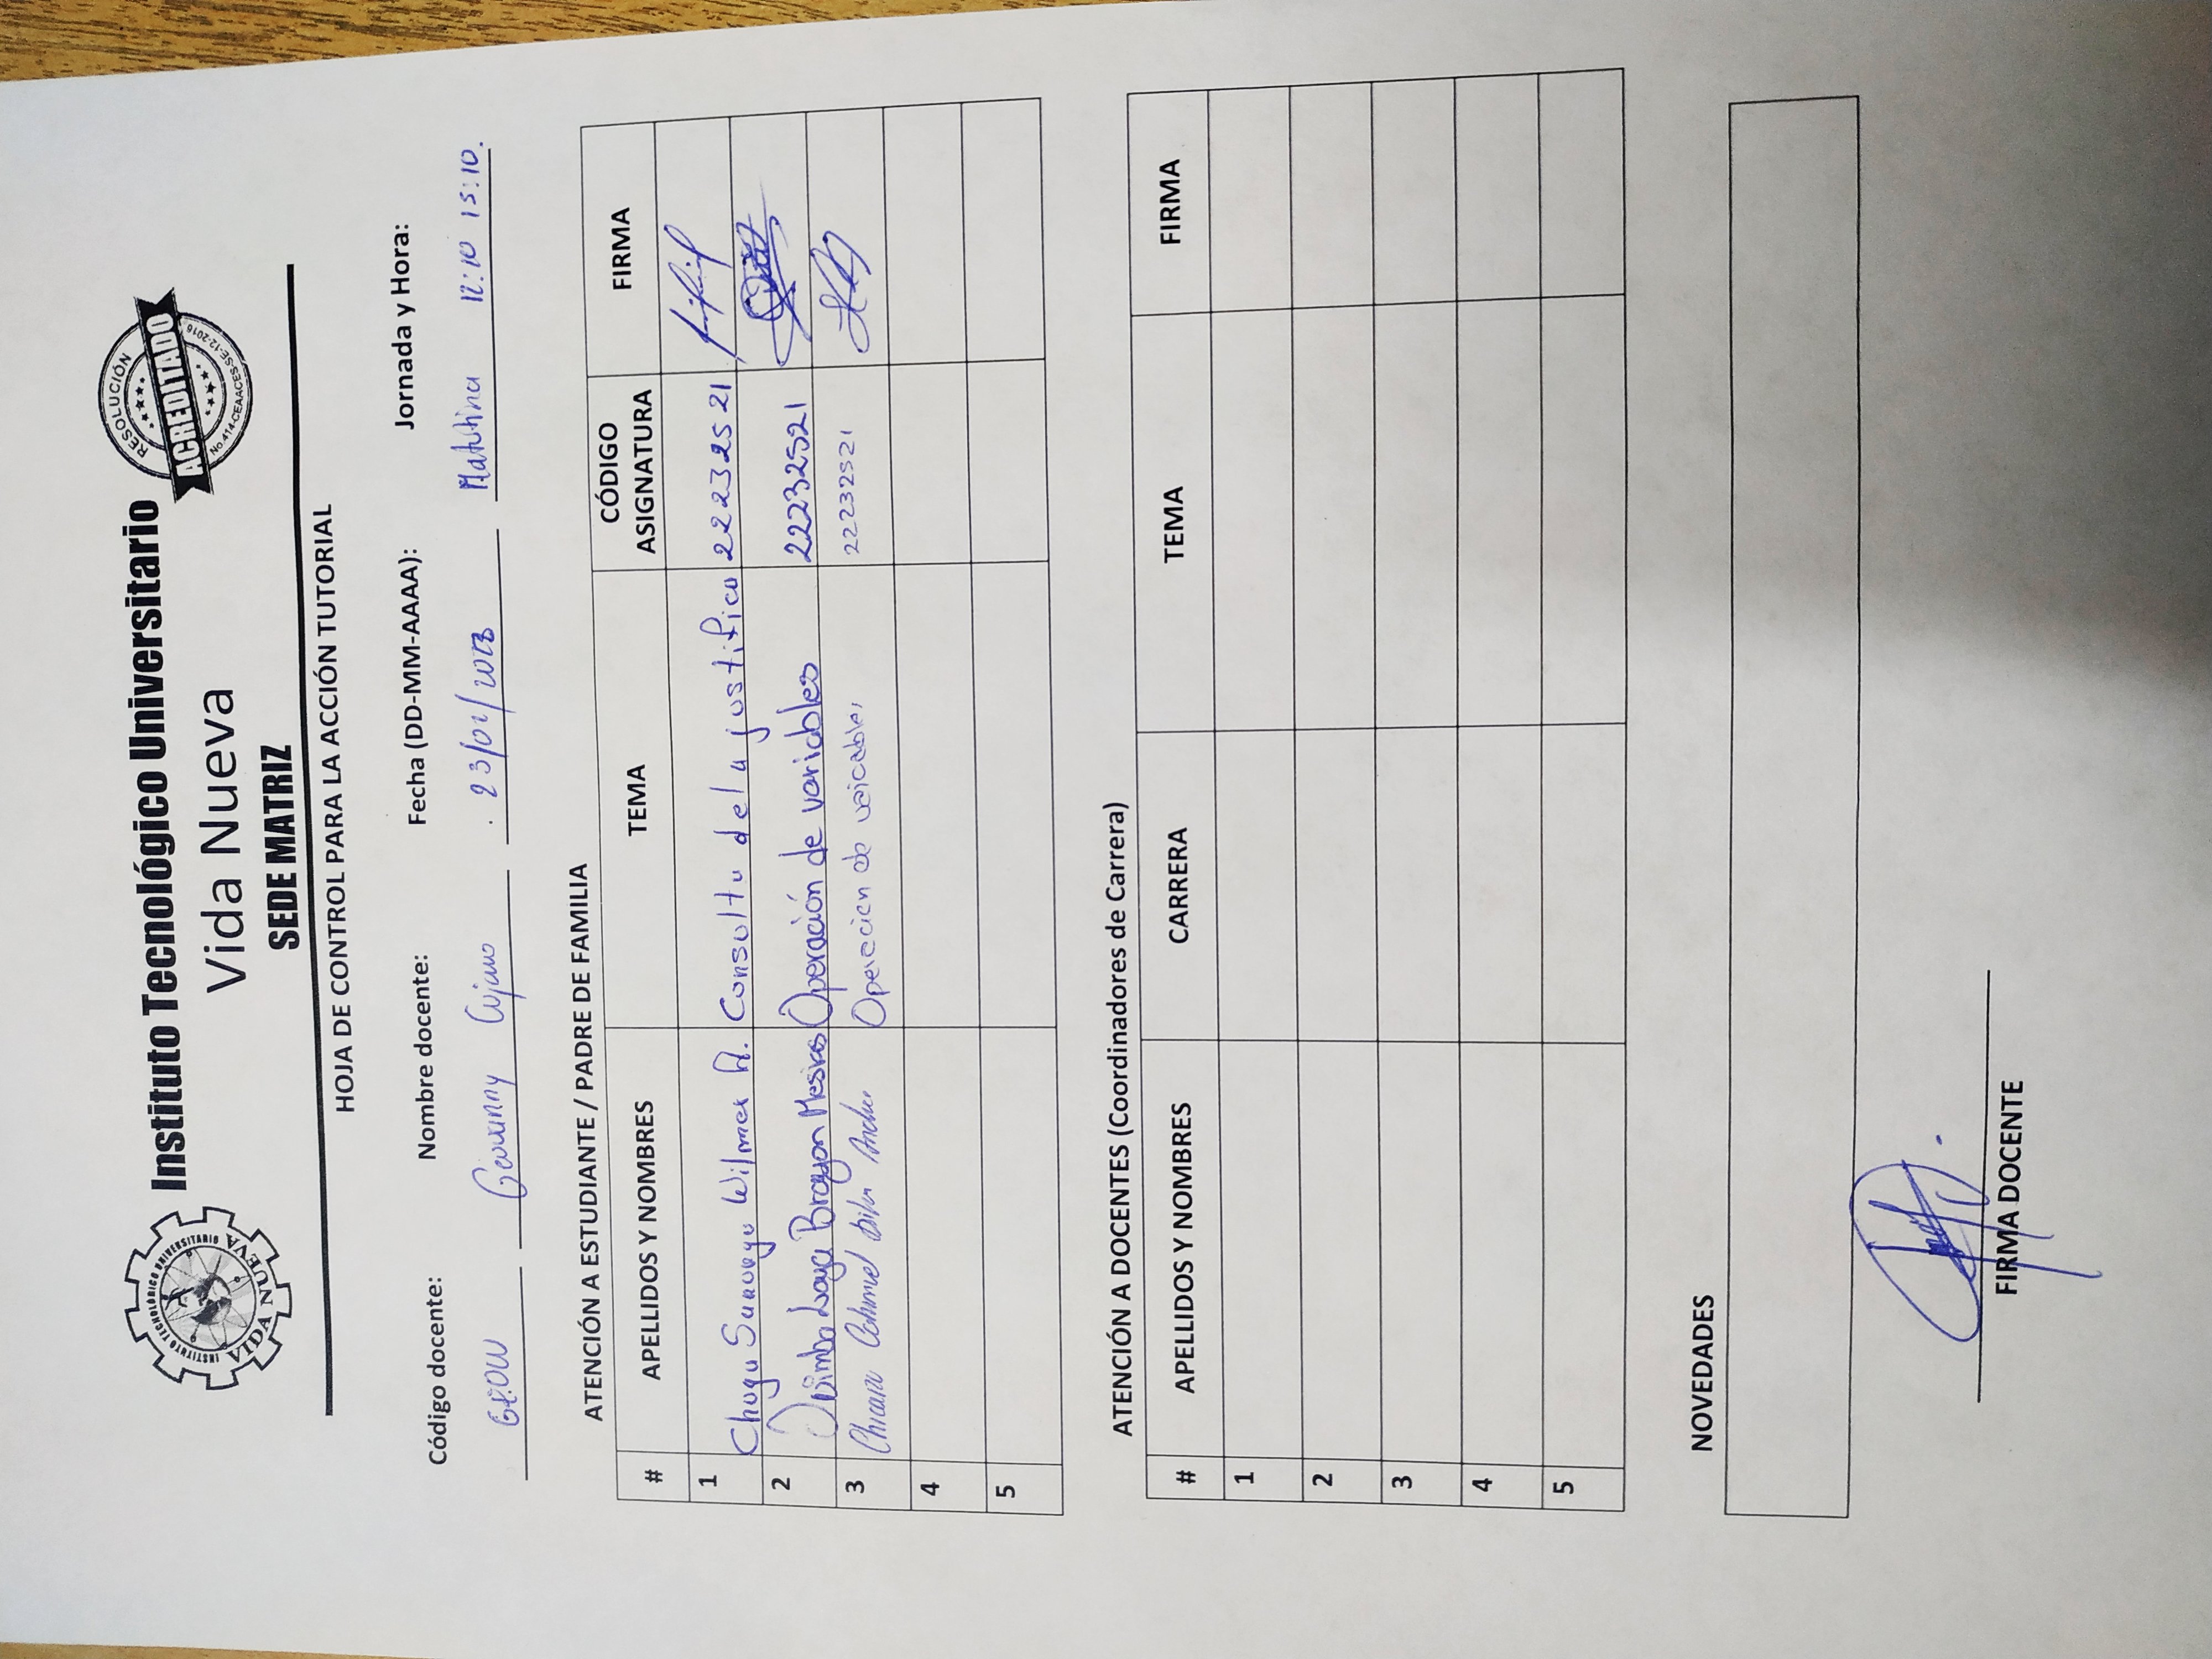 INSTITUTO TECNOLÓGICO UNIVERSITARIO
VIDA NUEVA
Instituto Tecnológico Universitario
Vida Nueva
SEDE MATRIZ
RESOLUCIÓN
ACREDITADO
No.414-CEAACES-SE-12-2016
HOJA DE CONTROL PARA LA ACCIÓN TUTORIAL
Código docente: Nombre docente: Fecha (DD-MM-AAAA): Jornada y Hora:
Geovanny Cujano 23/02/2023 Matutina 12:10 15:10.
ATENCIÓN A ESTUDIANTE / PADRE DE FAMILIA
# APELLIDOS Y NOMBRES TEMA CÓDIGO ASIGNATURA FIRMA
1 Wilmer A. Consulta de la justifico 22232521
2 Quimba Loya Brayan Mesias Operación de variables 22232521
3 Operacion de variables 22232521
4
5
ATENCIÓN A DOCENTES (Coordinadores de Carrera)
# APELLIDOS Y NOMBRES CARRERA TEMA FIRMA
1
2
3
4
5
NOVEDADES
FIRMA DOCENTE